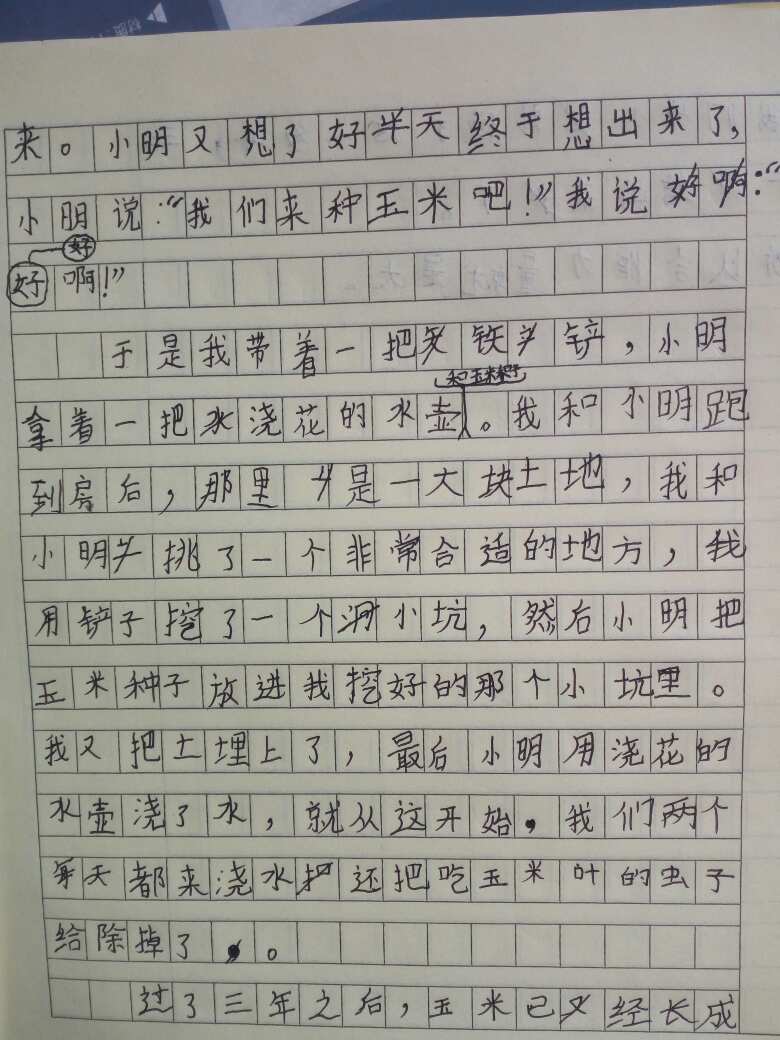 来。小明又想了好半天终于想出来了，
小明说：“我们来种玉米吧！”我说好啊：“
好
好啊！”
于是我带着一把铁铲，小明
和玉米种子
拿着一把水浇花的水壶。我和小明跑
到房后，那里是一大块土地，我和
小明挑了一个非常合适的地方，我
用铲子挖了一个小坑，然后小明把
玉米种子放进我挖好的那个小坑里。
我又把土埋上了，最后小明用浇花的
水壶浇了水，就从这开始，我们两个
每天都来浇水还把吃玉米叶的虫子
给除掉了。
过了三年之后，玉米已经长成